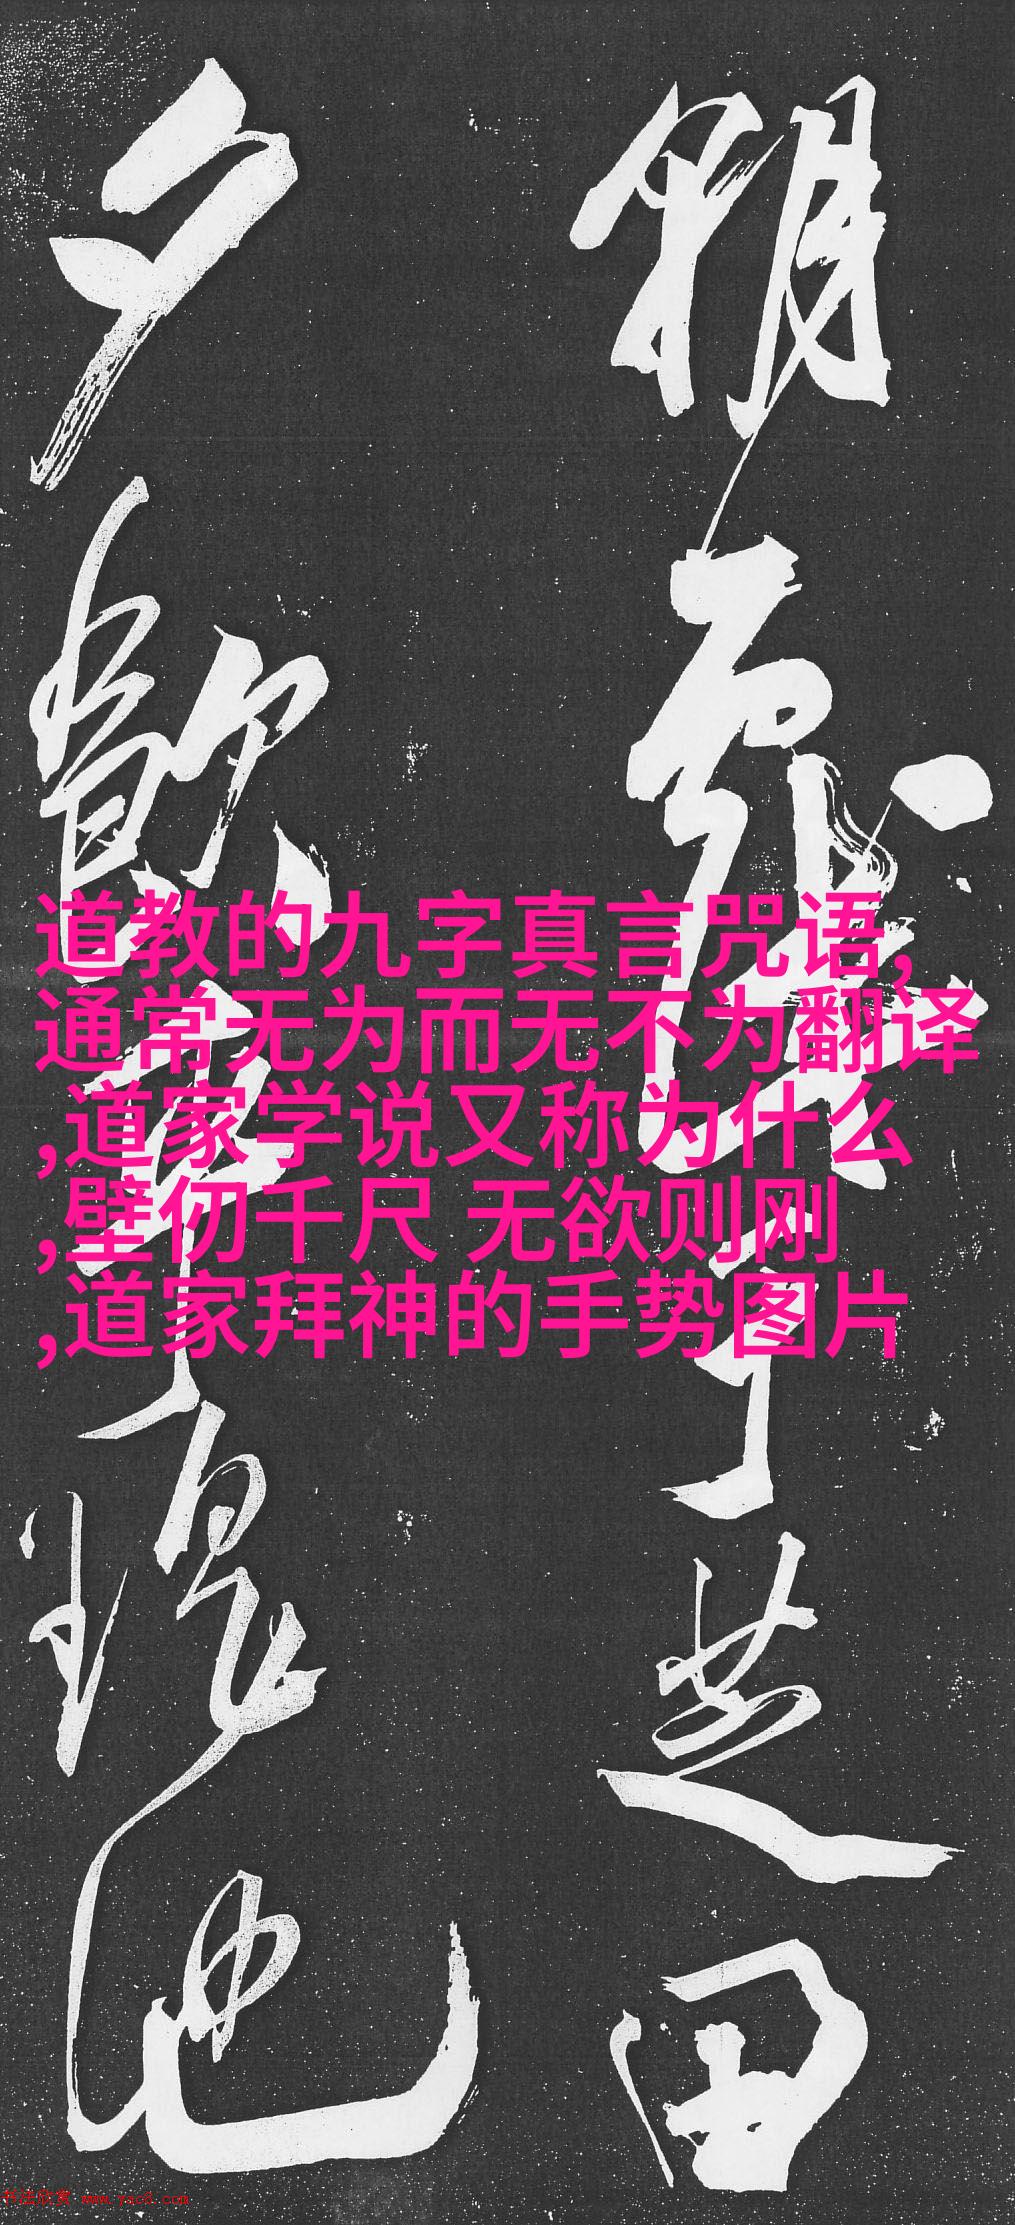 朝戲于芝田
夕飲乎瑤池
道教的九字真言咒语,
通常无为而无不为翻译
,道家学说又称为什么
,壁仞千尺 无欲则刚
,道家拜神的手势图片
书法欣赏 www.yac8.com